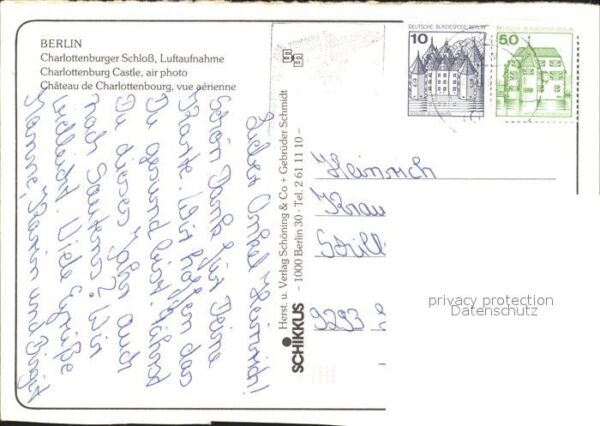 BERLIN
Charlottenburger Schloß, Luftaufnahme
Charlottenburg Castle, air photo
Château de Charlottenbourg, vue aérienne
Lieber Onkel Heinrich!
Schön Dank für Deine
Karte. Wir hoffen das
Du gesund bist. Fährst
Du dieses Jahr auch
nach Sauterns? Wir
vielleicht. Viele Grüße
Hanne, Karin und Birgit
Herst. u. Verlag Schöning & Co + Gebrüder Schmidt
– 1000 Berlin 30 · Tel. 2 61 11 10 –
SCHIKKUS
DEUTSCHE BUNDESPOST BERLIN
10
DEUTSCHE BUNDESPOST BERLIN
50
Heinrich
Krau
9293
privacy protection
Datenschutz